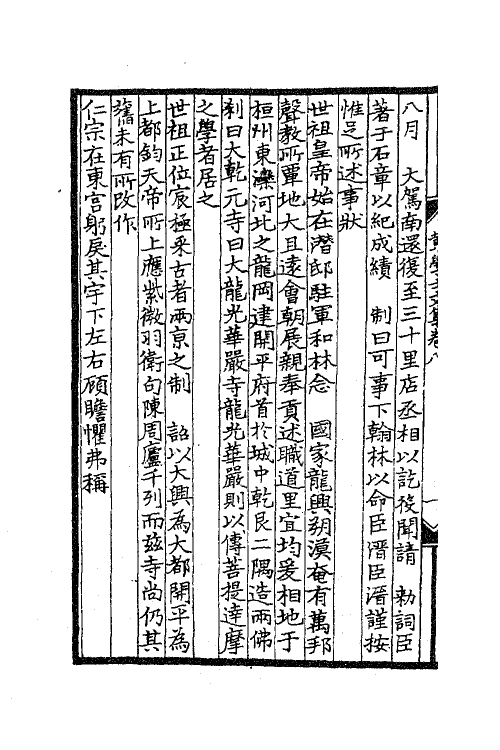 八月　大駕南還復至三十里店丞相以訖役聞請　勑詞臣
著于石章以紀成績　制曰可事下翰林以命臣溍臣溍謹按
惟足所述事狀
世祖皇帝始在潛邸駐軍和林念　國家龍興朔漠奄有萬邦
聲教所覃地大且遠會朝展親奉貢述職道里宜均爰相地于
桓州東灤河北之龍岡建開平府首於城中乾艮二隅造兩佛
刹曰大乾元寺曰大龍光華嚴寺龍光華嚴則以傳菩提達摩
之學者居之
世祖正位宸極釆古者兩京之制　詔以大興為大都開平為
上都鈞天帝所上應紫微羽衛句陳周廬千列而兹寺尚仍其
舊未有所改作
仁宗在東宫躬戾其宇下左右顧瞻懼弗稱
黄學士文集卷八